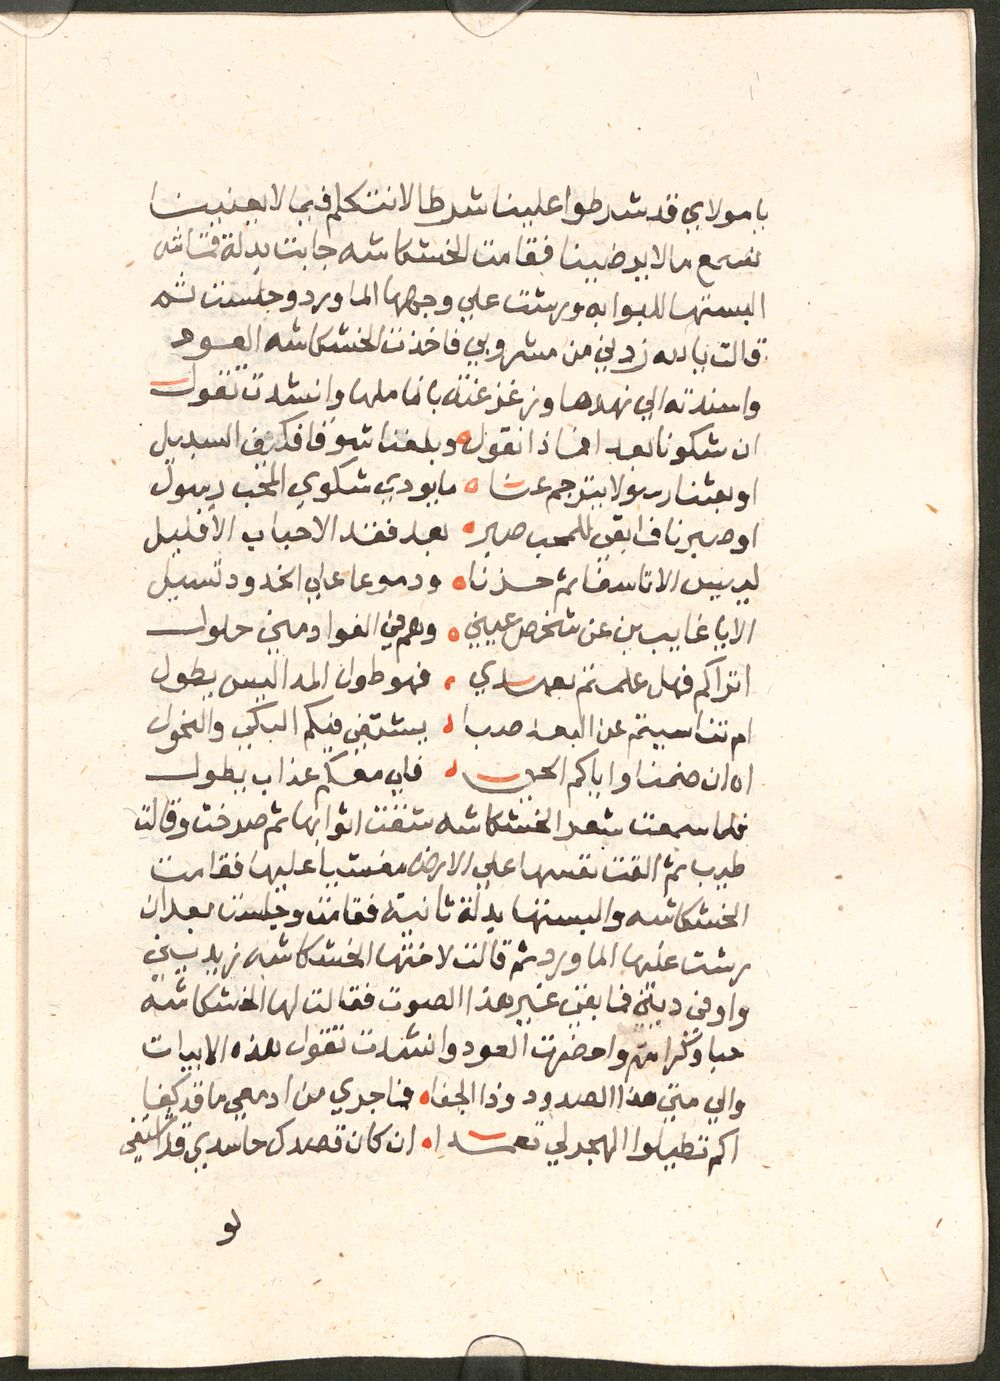 يا مولاي قد شرطوا علينا شرطا لا نتكلم فيما لا يعنينا
نسمع ما لا يرضينا فقامت الخشكاشه جابت بدلة قماشه
البستها للبوابه ورشت علي وجهها الماورد وجلست ثم
قالت بالله زدني من مشروبي فاخذت الخشكاشه العود
واسندته الي نهدها وزغزغته باناملها وانشدت تقول
ان شكونا لعد فماذا نقول وبلغنا شوقا فكيف السبيل
او بعثنا رسولا يترجم عنا ما يودي شكوي المحب رسول
او صبرنا فما بقي للمحب صبر بعد فقد الاحباب الا قليل
ليس الا تاسفا ثم حزنا ودموعا علي الخدود تسيل
الا يا غايبين عن شخص عيني وهم في الفواد مني حلول
اتراكم فهل علمتم بعهدي فهو طول المدا ليس يطول
ام تناسيتم عن البعد صبا يشتفي فيكم البكي والنحول
اه ان ضمنا واياكم الحي فان معكم عذاب يطول
فلما سمعت شعر الخشكاشه شقت اثوابها ثم صرخت وقالت
طيب ثم القت نفسها علي الارض مغشيا عليها فقامت
الخشكاشه والبستها بدلة ثانية فقامت وجلست بعد ان
رشت عليها الماورد ثم قالت لاختها الخشكاشه زيديني
واوفي ديني فما بقي غير هذا الصوت فقالت لها الخشكاشه
حبا وكرامة واحضرت العود وانشدت تقول هذه الابيات
والي متي هذا الصدود وذا الجفا فما جري من ادمعي ما قد كفا
اكم تطيلوا الهجر لي تعمدا ان كان قصدك حاسدي قد اشتفي
لو